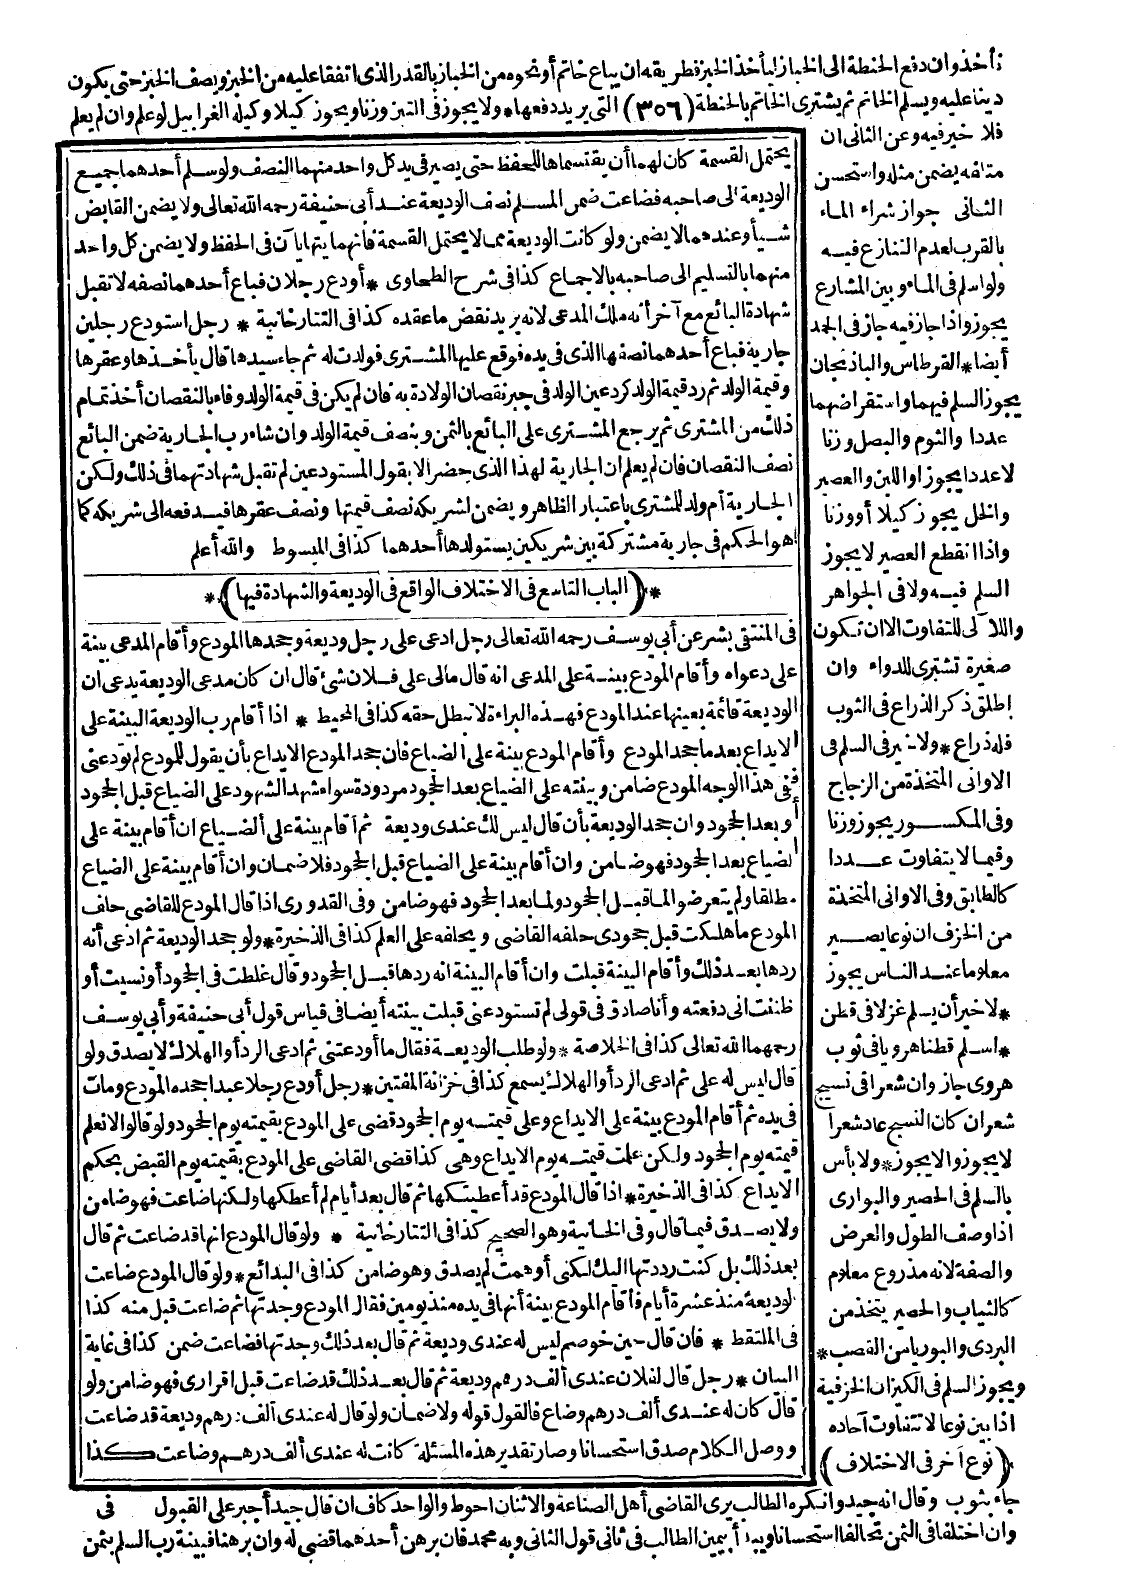 تأخذوان دفع الحنطة الى الخباز ليأخذ الخبز فطريقه ان يباع خاتم أو نحوه من الخباز بالقدر الذى اتفقا عليه من الخبز ويصف الخبز حتى يكون
دينا عليه ويسلم الخاتم ثم يشترى الخاتم بالحنطة (٣٥٦) التى يريد دفعها * ولا يجوز فى التبن وزنا ويجوز كيلا وكيله الغرابيل لو علم وان لم يعلم
فلا خيرفيه وعن الثانى ان
متلفه يضمن مثله واستحسن
الثانى جواز شراء الماء
بالقرب لعدم التنازع فيه
ولو اسلم فى الماء وبين المشارع
يجوز واذا جاز فيه جاز فى الجمد
أيضا * القرطاس والباذنجان
يجوز السلم فيهما واستقراضهما
عددا والثوم والبصل وزنا
لا عددا يجوز او اللبن والعصير
والخل يجوز كيلا أو وزنا
واذا انقطع العصير لا يجوز
السلم فيه ولا فى الجواهر
واللآلى للتفاوت الا ان تكون
صغيرة تشترى للدواء وان
اطلق ذكر الذراع فى الثوب
فله ذراع * ولا خير فى السلم فى
الاوانى المتخذة من الزجاج
وفى المكسور يجوز وزنا
وفيما لا يتفاوت عددا
كالطابق وفى الاوانى المتخذة
من الخزف ان نوعا يصير
معلوما عند الناس يجوز
* لا خير أن يسلم غزلا فى قطن
* اسلم قطنا هرويا فى ثوب
هروى جاز وان شعرا فى نسيج
شعر ان كان النسيج عاد شعرا
لا يجوز والا يجوز * ولا بأس
بالسلم فى الحصير والبوارى
اذا وصف الطول والعرض
والصفة لانه مذروع معلوم
كالثياب والحصير يتخذ من
البردى والبوريا من القصب *
ويجوز السلم فى الكيزان الخزفية
اذا بين نوعا لا تتفاوت آحاده
(نوع آخر فى الاختلاف)
يحتمل القسمة كان لهما أن يقتسماها للحفظ حتى يصير فى يد كل واحد منهما النصف ولو سلم أحدهما جميع
الوديعة الى صاحبه فضاعت ضمن المسلم نصف الوديعة عند أبى حنيفة رحمه الله تعالى ولا يضمن القابض
شيأ وعندهما لا يضمن ولو كانت الوديعة مما لا يحتمل القسمة فانهما يتهايآن فى الحفظ ولا يضمن كل واحد
منهما بالتسليم الى صاحبه بالاجماع كذا فى شرح الطحاوى * أودع رجلان فباع أحدهما نصفه لا تقبل
شهادة البائع مع آخر أنه ملك المدعى لانه يريد نقض ما عقده كذا فى التتارخانية * رجل استودع رجلين
جارية فباع أحدهما نصفها الذى فى يده فوقع عليها المشترى فولدت له ثم جاء سيدها قال يأخذها وعقرها
وقيمة الولد ثم رد قيمة الولد كرد عين الولد فى جبر نقصان الولادة به فان لم يكن فى قيمة الولد وفاء بالنقصان أخذ تمام
ذلك من المشترى ثم يرجع المشترى على البائع بالثمن وبنصف قيمة الولد وان شاء رب الجارية ضمن البائع
نصف النقصان فان لم يعلم ان الجارية لهذا الذى حضر الا بقول المستودعين لم تقبل شهادتهما فى ذلك ولكن
الجارية أم ولد للمشترى باعتبار الظاهر ويضمن لشريكه نصف قيمتها ونصف عقرها فيدفعه الى شريكه كما
هو الحكم فى جارية مشتركة بين شريكين يستولدها أحدهما كذا فى المبسوط والله أعلم
* (الباب التاسع فى الاختلاف الواقع فى الوديعة والشهادة فيها) *
فى المنتقى بشر عن أبى يوسف رحمه الله تعالى رجل ادعى على رجل وديعة وجحدها المودع وأقام المدعى بينة
على دعواه وأقام المودع بينة على المدعى انه قال مالى على فلان شئ قال ان كان مدعى الوديعة يدعى ان
الوديعة قائمة بعينها عند المودع فهذه البراءة لا تبطل حقه كذا فى المحيط * اذا أقام رب الوديعة البينة على
الايداع بعد ما جحد المودع وأقام المودع بينة على الضياع فان جحد المودع الايداع بأن يقول للمودع لم تودعنى
ففى هذا الوجه المودع ضامن وبينته على الضياع بعد الجحود مردودة سواء شهد الشهود على الضياع قبل الجحود
أو بعد الجحود وان جحد الوديعة بأن قال ليس لك عندى وديعة ثم أقام بينة على الضياع ان أقام بينة على
الضياع بعد الجحود فهو ضامن وان أقام بينة على الضياع قبل الجحود فلا ضمان وان أقام بينة على الضياع
مطلقا ولم يتعرضوا لما قبل الجحود ولما بعد الجحود فهو ضامن وفى القدورى اذا قال المودع للقاضى حلف
المودع ما هلكت قبل جحودى حلفه القاضى ويحلفه على العلم كذا فى الذخيرة * ولو جحد الوديعة ثم ادعى أنه
ردها بعد ذلك وأقام البينة قبلت وان أقام البينة انه ردها قبل الجحود وقال غلطت فى الجحود أو نسيت أو
ظننت انى دفعته وأنا صادق فى قولى لم تستودعنى قبلت بينته أيضا فى قياس قول أبى حنيفة وأبى يوسف
رحمهما الله تعالى كذا فى الخلاصة * ولو طلب الوديعة فقال ما أودعتنى ثم ادعى الرد أو الهلاك لا يصدق ولو
قال ليس له على ثم ادعى الرد أو الهلاك يسمع كذا فى خزانة المفتين * رجل أودع رجلا عبدا جحده المودع ومات
فى يده ثم أقام المودع بينة على الايداع وعلى قيمته يوم الجحود قضى على المودع بقيمته يوم الجحود ولو قالوا لا نعلم
قيمته يوم الجحود ولكن علمت قيمته يوم الايداع وهى كذا قضى القاضى على المودع بقيمته يوم القبض بحكم
الايداع كذا فى الذخيرة * اذا قال المودع قد أعطيتكها ثم قال بعد أيام لم أعطكها ولكنها ضاعت فهو ضامن
ولا يصدق فيما قال وفى الخانية وهو الصحيح كذا فى التتارخانية * ولو قال المودع انها قد ضاعت ثم قال
بعد ذلك بل كنت رددتها اليك لكنى أوهمت لم يصدق وهو ضامن كذا فى البدائع * ولو قال المودع ضاعت
لوديعة منذ عشرة أيام فأقام المودع بينة أنها فى يده منذ يومين فقال المودع وجدتها ثم ضاعت قبل منه كذا
فى الملتقط * فان قال حين خوصم ليس له عندى وديعة ثم قال بعد ذلك وجدتها فضاعت ضمن كذا فى غاية
البيان * رجل قال لفلان عندى ألف درهم وديعة ثم قال بعد ذلك قد ضاعت قبل اقرارى فهو ضامن ولو
قال كان له عندى ألف درهم وضاع فالقول قوله ولا ضمان ولو قال له عندى ألف درهم وديعة قد ضاعت
ووصل الكلام صدق استحسانا وصار تقدير هذه المسئلة كانت له عندى ألف درهم وضاعت كذا
جاء بثوب وقال انه جيد وانكره الطالب يرى القاضى أهل الصناعة والاثنان احوط والواحد كاف ان قال جيد أجبر على القبول فى
وان اختلفا فى الثمن تحالفا استحسانا ويبدأ بيمين الطالب فى ثانى قول الثانى وبه محمد فان برهن أحدهما قضى له وان برهنا فبينة رب السلم بثمن